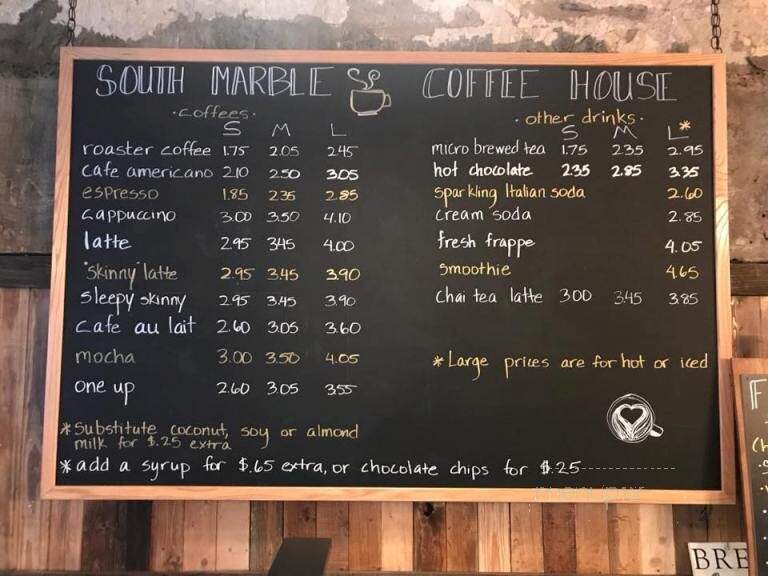 SOUTH MARBLE COFFEE HOUSE
·coffees·
S M L
roaster coffee 1.75 2.05 2.45
cafe americano 2.10 2.50 3.05
espresso 1.85 2.35 2.85
cappuccino 3.00 3.50 4.10
latte 2.95 3.45 4.00
"skinny" latte 2.95 3.45 3.90
sleepy skinny 2.95 3.45 3.90
cafe au lait 2.60 3.05 3.60
mocha 3.00 3.50 4.05
one up 2.60 3.05 3.55
*Substitute coconut, soy or almond
milk for $.25 extra
*add a syrup for $.65 extra, or chocolate chips for $.25
·other drinks·
S M L*
micro brewed tea 1.75 2.35 2.95
hot chocolate 2.35 2.85 3.35
sparkling Italian soda 2.60
cream soda 2.85
fresh frappe 4.05
smoothie 4.65
chai tea latte 3.00 3.45 3.85
*Large prices are for hot or iced
F
BRE